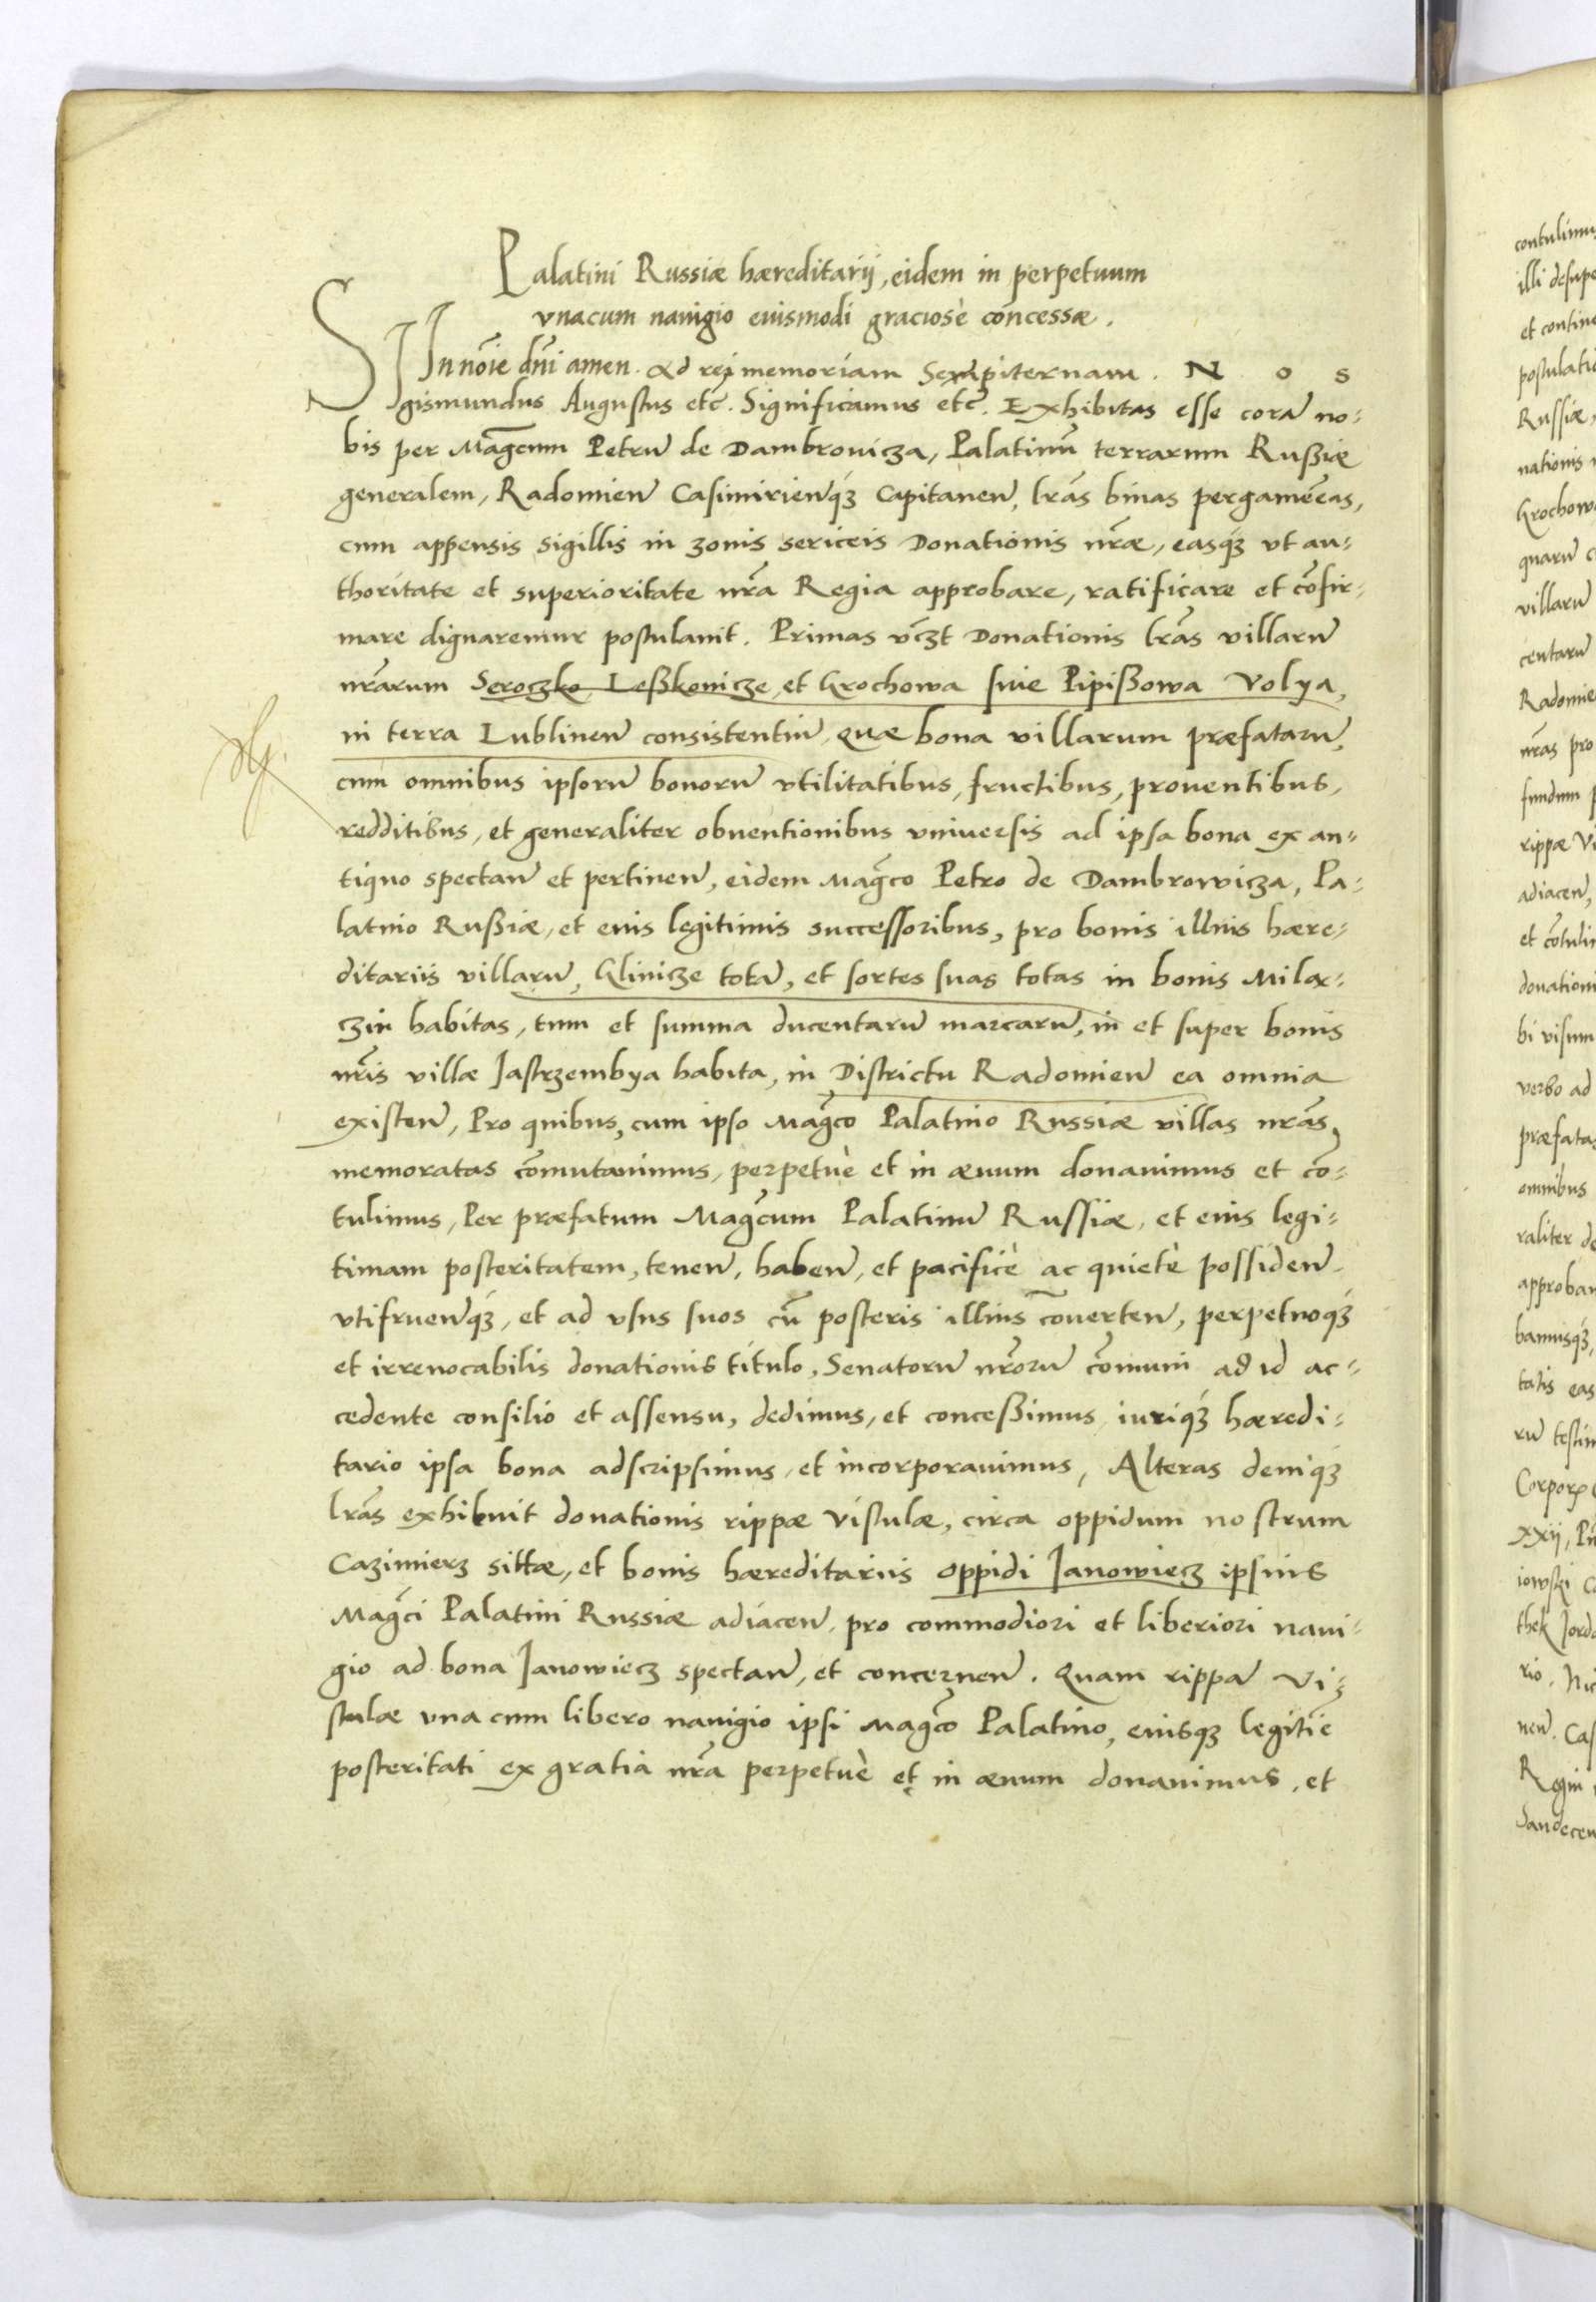 Palatini Russiæ hæreditarij, eidem in perpetuum
vnacum nauigio euismodi graciosè concessæ.
In noīe dn̄i amen. Ad rei memoriam Sempiternam. N o s
Sigismundus Augustus etc̄. Significamus etc̄. Exhibitas esse corā no-
bis per Maḡcum Petrū de Dambrouicza, Palatinū terrarum Rußiæ
generalem, Radomień Casimirienq́ꝫ Capitaneū, lrās binas pergamēeas,
cum appensis sigillis in zonis sericeis Donationis nrāe, easq́ꝫ vt au-
thoritate et superioritate nrā Regia approbare, ratificare et cōfir-
mare dignaremur postulauit. Primas vc̄ꝫt Donationis lrās villarū
nrārum Seroczko Leßkouicze, et Grochowa siue Pipißowa Volya,
in terra Lublineń consistentiū, Quæ bona villarum præfatarū,
cum omnibus ipsorū bonorū vtilitatibus, fructibus, prouentibus,
redditibus, et generaliter obuentionibus vniuersis ad ipsa bona ex an-
tiquo spectań et pertineń, eidem Maḡco Petro de Dambrowicza, Pa-
latino Rußiæ, et eius legitimis successoribus, pro bonis illius hære-
ditariis villarū, Glinicze totā, et sortes suas totas in bonis Milax-
zin habitas, tum et summa ducentarū marcarū, in et super bonis
nrīs villæ Jastrzembya habita, in Districtu Radomień ea omnia
existeń, Pro quibus, cum ipso Maḡco Palatino Russiæ villas nrās
memoratas cōmutauimus, perpetuè et in æuum donauimus et cō-
tulimus, Per præfatum Maḡcum Palatinū Russiæ, et eius legi-
timam posteritatem, teneń, habeń, et pacificè ac quietè possideń
vtifrueńq́ꝫ, et ad vsus suos cū posteris illius cōuerteń, perpetuoq́ꝫ
et irreuocabilis donationis titulo, Senatorū nrōrū cōmuni ad id ac-
cedente consilio et assensu, dedimus, et conceßimus iuriq́ꝫ hæredi-
tario ipsa bona adscripsimus, et incorporauimus, Alteras deniq́ꝫ
lrās exhibuit donationis rippæ Vistulæ, circa oppidum nostrum
Cazimierz sittæ, et bonis hæreditariis oppidi Janowiecz ipsius
Maḡci Palatini Russiæ adiaceń, pro commodiori et liberiori naui-
gio ad bona Janowiecz spectań, et concerneń. Quam rippā Vi-
stulæ vna cum libero nauigio ipsi Maḡco Palatino, eiusqꝫ legitīe
posteritati ex gratia nrā perpetuè et in æuum donauimus, et
contulimus
illi desupe
et contine
postulatio
Russiæ,
nationis
Grochow
quarū
villarū
centarū
Radomie
nrās pro
fundum
rippæ Vi
adiaceń,
et cōtuli
donation
bi visum
verbo ad
præfatas
omnibus
raliter de
approbau
bamusq́ꝫ,
tatis eas
rū testim
Corporꝭ
xxij,
iowski
thek Jord
rio. Nic
neń. Cas
Regni
Sandeceń